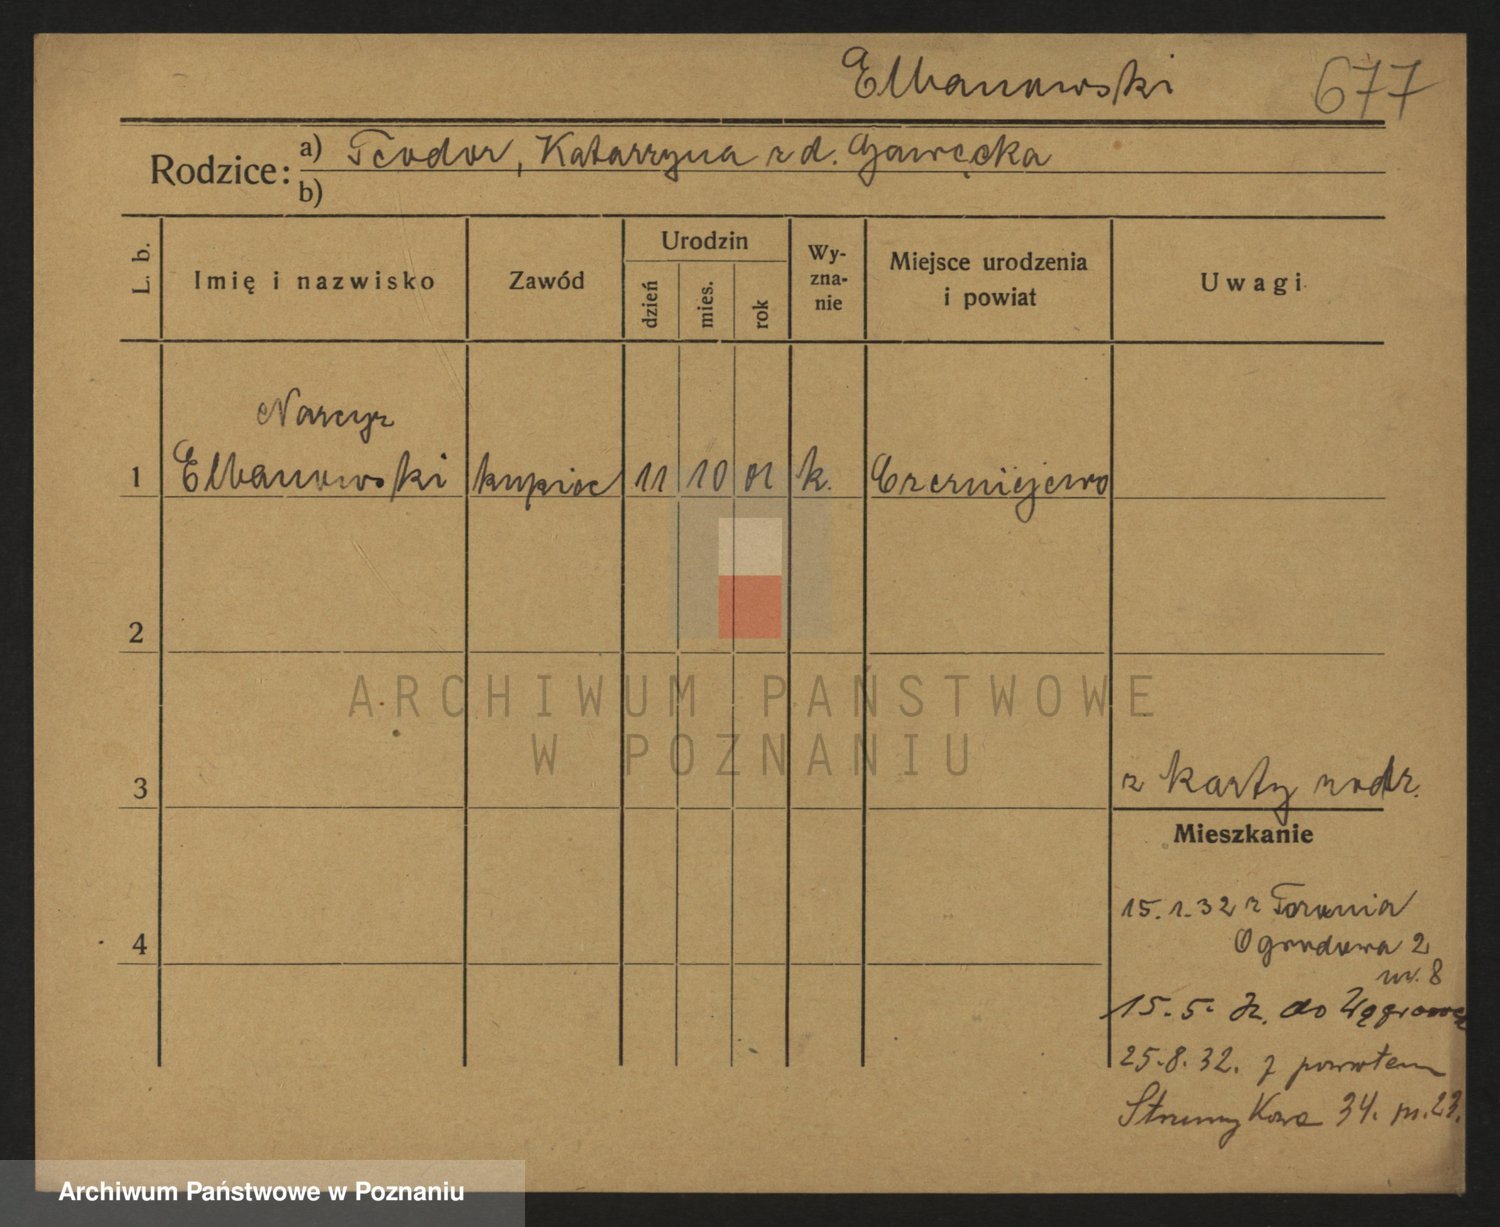 Elbanowski 677
Rodzice: a) Teodor, Katarzyna z d. Gawęcka
b)
L. b. Imię i nazwisko Zawód Urodzin dzień mies. rok Wy-zna-nie Miejsce urodzenia i powiat Uwagi
Narcyz
1 Elbanowski kupiec 11 10 01 k. Czerniejewo
2
ARCHIWUM PAŃSTWOWE
W POZNANIU
3 z karty rodz.
Mieszkanie
15.1.32 z Torunia
4 Ogrodowa 2
m. 8
15.5. 32. do Wągrowca
25.8.32. z powrotem
Strumykowa 34. m. 23.
Archiwum Państwowe w Poznaniu